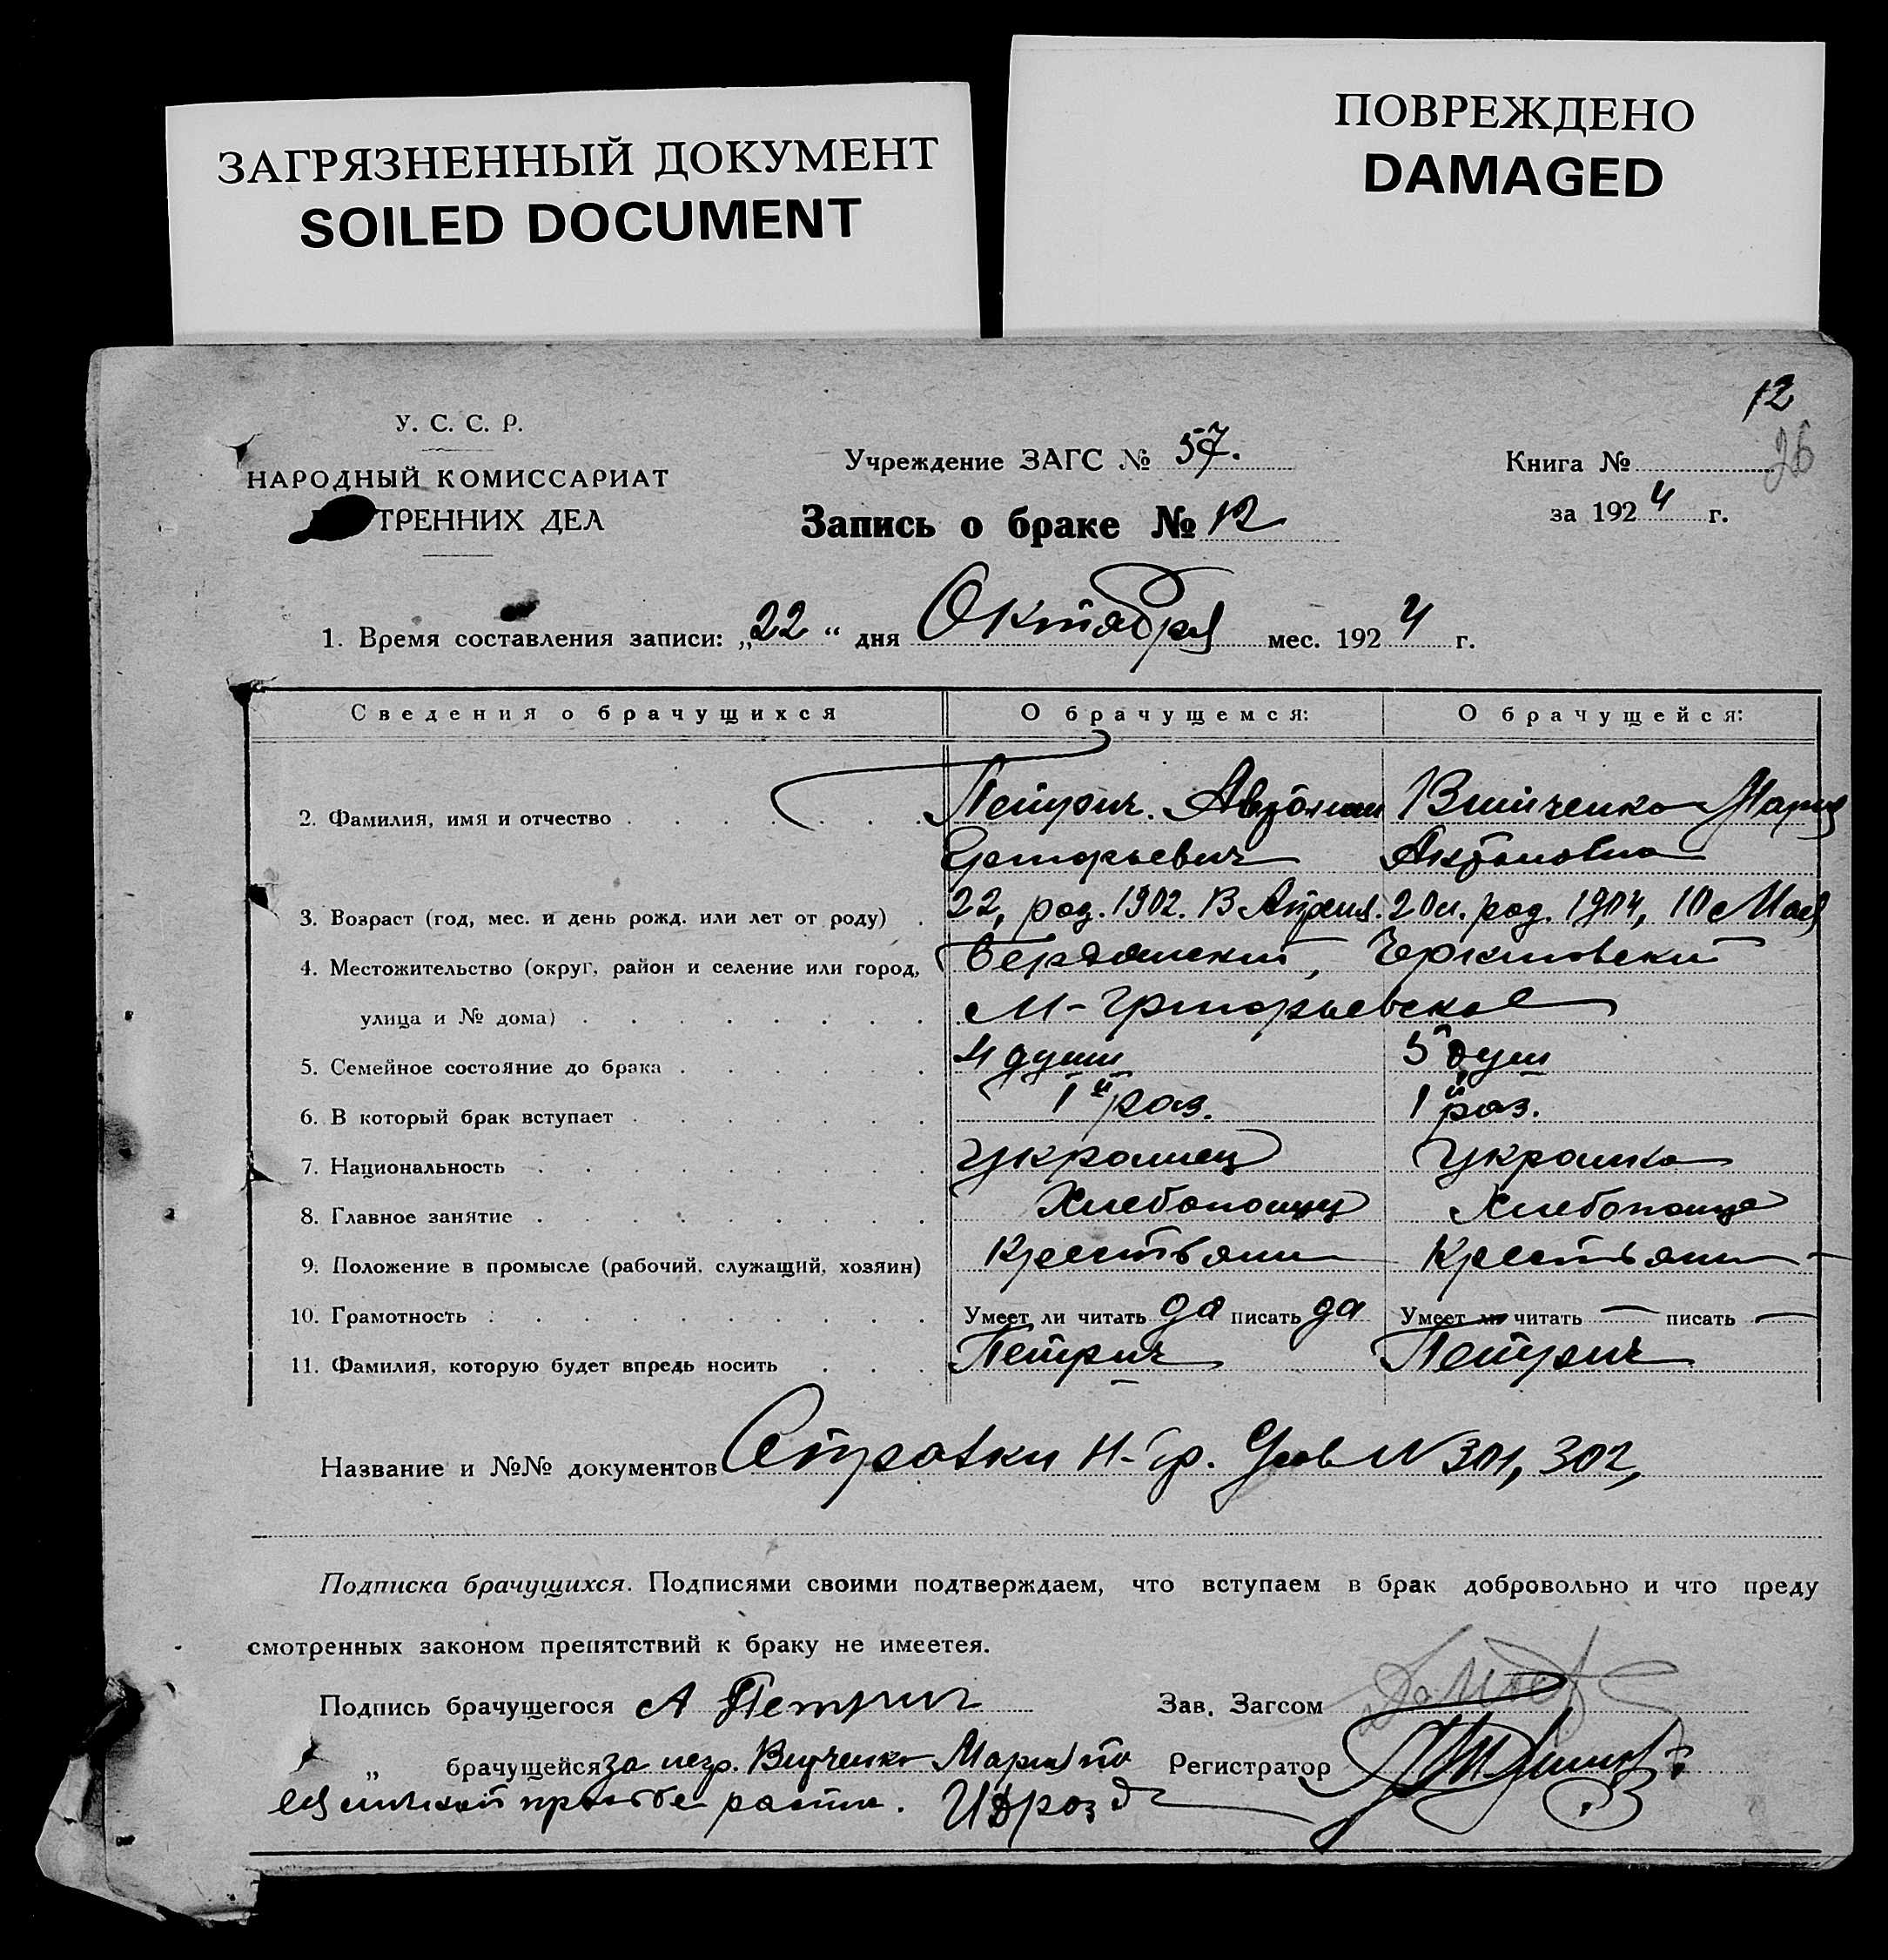 ЗАГРЯЗНЕННЫЙ ДОКУМЕНТ
SOILED DOCUMENT
ПОВРЕЖДЕНО
DAMAGED
12
26
У. С. С. Р.
НАРОДНЫЙ КОМИССАРИАТ
ТРЕННИХ ДЕЛ
Учреждение ЗАГС № 57.
Книга №
Запись о браке № 12
за 1924 г.
1. Время составления записи: „22“ дня Октября мес. 1924 г.
Сведения о брачущихся О брачущемся: О брачущейся:
2. Фамилия, имя и отчество Петрич. Мария
Григорьевич Антоновна
3. Возраст (год, мес. и день рожд. или лет от роду) 22, род. 1902. 13 Апреля. 20 л. род. 1904, 10 Мая
4. Местожительство (округ, район и селение или город, Бердянский,
улица и № дома) Григорьевское
5. Семейное состояние до брака 4 души 5 душ
6. В который брак вступает 1й раз. 1й раз.
7. Национальность Украинец Украинка
8. Главное занятие Хлебопашец Хлебопашец
9. Положение в промысле (рабочий, служащий, хозяин) Крестьянин Крестьянин
10. Грамотность Умеет ли читать да писать да Умеет ли читать — писать —
11. Фамилия, которую будет впредь носить Петрич Петрич
Название и №№ документов Справки Н-Гр. № 301, 302,
Подписка брачущихся. Подписями своими подтверждаем, что вступаем в брак добровольно и что преду
смотренных законом препятствий к браку не имеетея.
Подпись брачущегося А Петрич Зав. Загсом
„ брачущейся за негр. Мария по Регистратор
ея личной просьбе